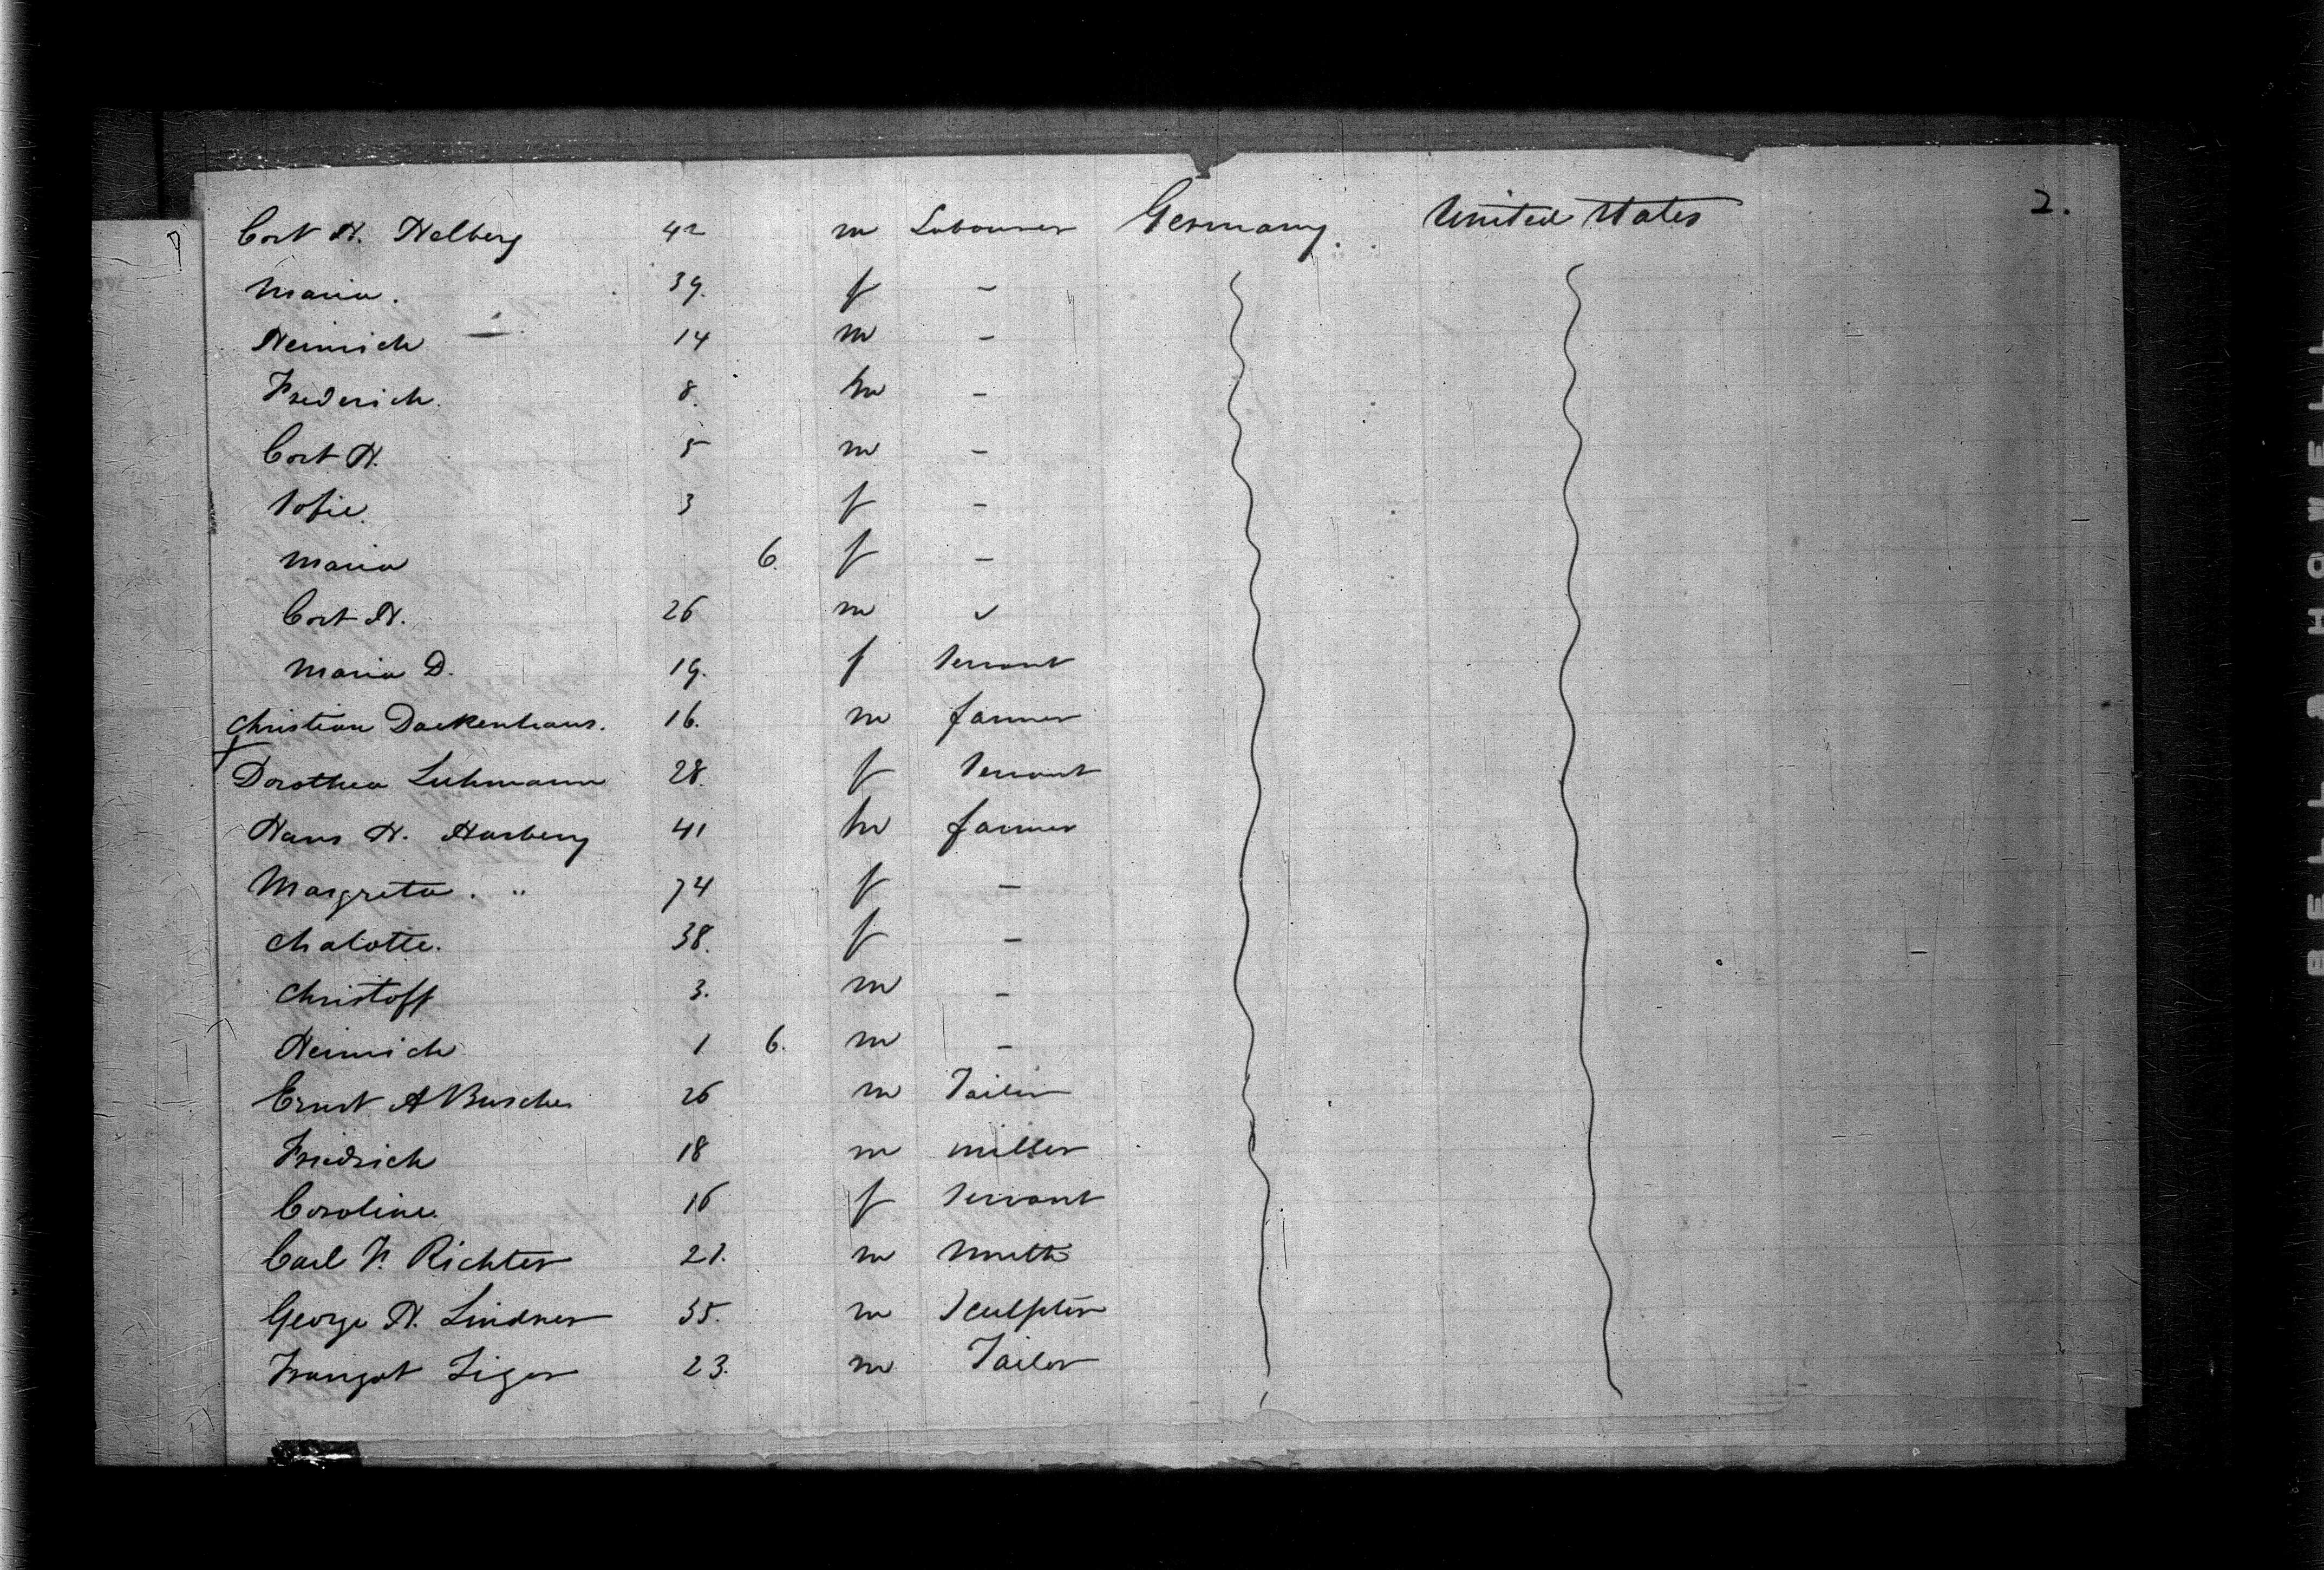 2.
Cort H. Helberg 42 m Labourer Germany. United States
Maria. 39. f –
Heinrich 14 m –
Frederich. 8. m –
Cort H. 5 m –
Sofie. 3 f –
Maria 6. f –
Cort H. 26 m
Maria D. 19. f Servant
Christian Dackenhaus. 16. m farmer
Dorothea Luhmann 28. f Servant
Hans H. Harberg 41 m farmer
Margreta. " 74 f –
Chalotte. 38. f –
Christoff 3. m –
Heinrich 1 6. m –
Ernst A Busche 26 m Tailor
Friedrich 18 m miller
Caroline. 16 f Servant
Carl F. Richter 21. m Smith
George H. Lindner 35. m Sculptor
23. m Tailor
BELL & HOWELL